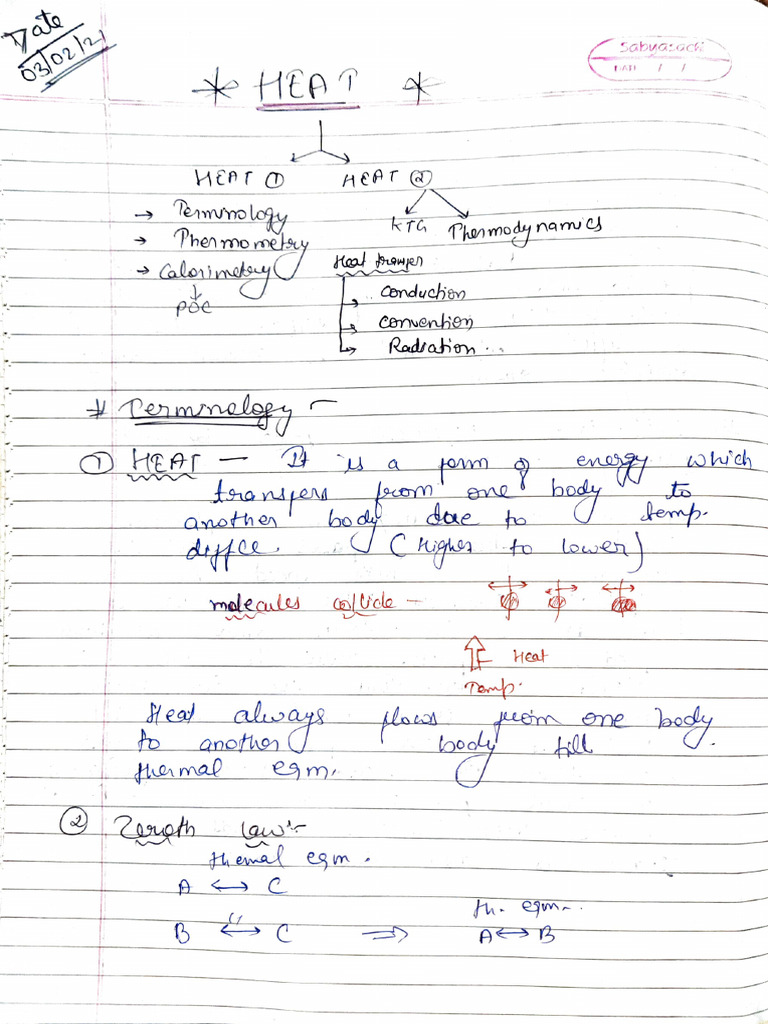 Date
03/02/21
Sabyasachi
DATE / /
* HEAT *
HEAT ① HEAT ②
→ Terminology
→ Thermometry
→ Calorimetry
POC
KTG Thermodynamics
Heat transfer
→ Conduction
→ Convention
→ Radiation...
# Terminology -
① HEAT — It is a form of energy which
transfers from one body to
another body due to temp.
diffce. (Higher to lower)
molecules collide -
Heat
Temp.
Heat always flows from one body
to another body till
thermal eqm.
② Zeroth law:-
thermal eqm.
A ↔ C
B ↔ C ⇒ A ↔ B
th. eqm..